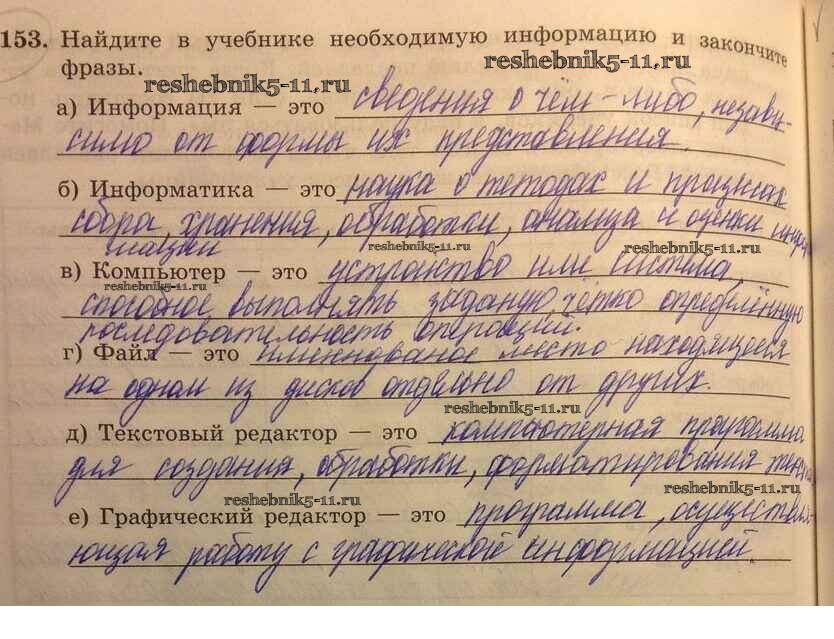 153. Найдите в учебнике необходимую информацию и закончите
фразы.
reshebnik5-11.ru
reshebnik5-11.ru
а) Информация — это сведения о чём-либо, незави-
симо от формы их представления.
б) Информатика — это наука о методах и процессах
сбора, хранения, обработки, анализа и оценки инфор
мации
reshebnik5-11.ru
reshebnik5-11.ru
в) Компьютер — это устройство или система,
reshebnik5-11.ru
способное выполнять заданую, чётко определённую
последовательность операций.
г) Файл — это именованое место находящееся
на одном из дисков отдельно от других.
reshebnik5-11.ru
д) Текстовый редактор — это компьютерная программа
для создания, обработки, форматирования
reshebnik5-11.ru
reshebnik5-11.ru
е) Графический редактор — это программа, осуществля-
ющая работу с графической информацией.